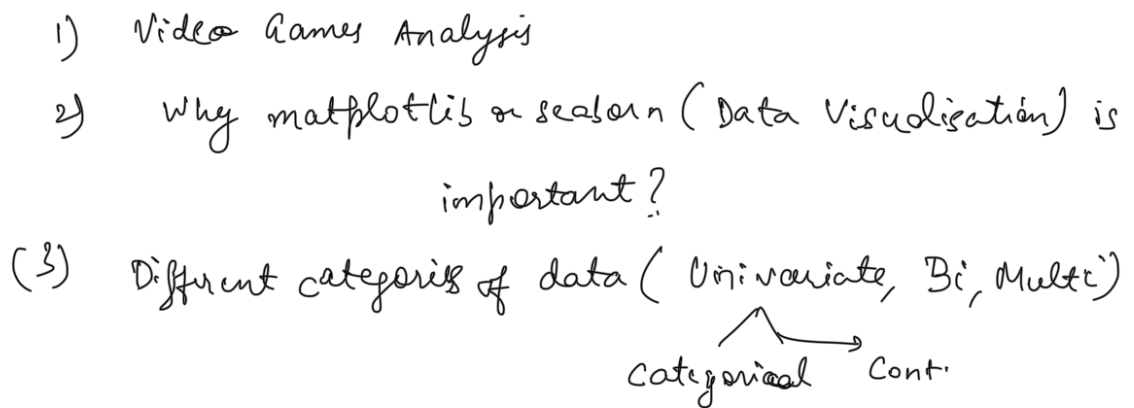 1) Video Games Analysis
2) Why matplotlib or seaborn (Data Visualisation) is
important?
(3) Different categories of data (Univariate, Bi, Multi)
Categorical Cont.